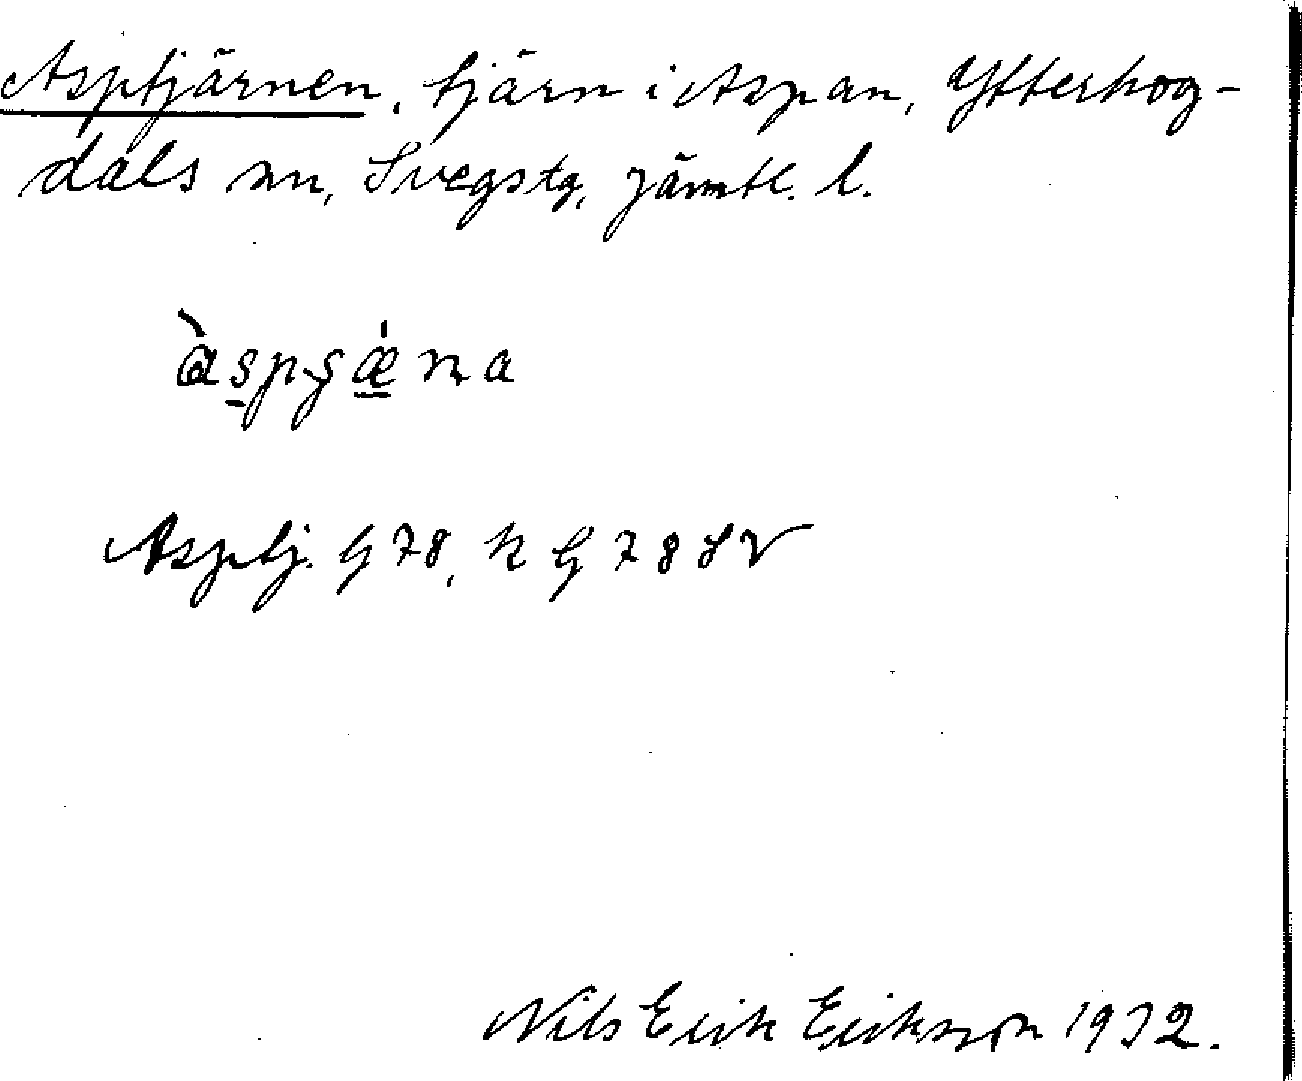 Asptjärnen, tjärn i Aspan, Ytterhog-
dals sn, Svegs tg, Jämtl. l.
àspʂǽna
Asptj. G 78, K G 78 SV
Nils Erik Erikson 1932.